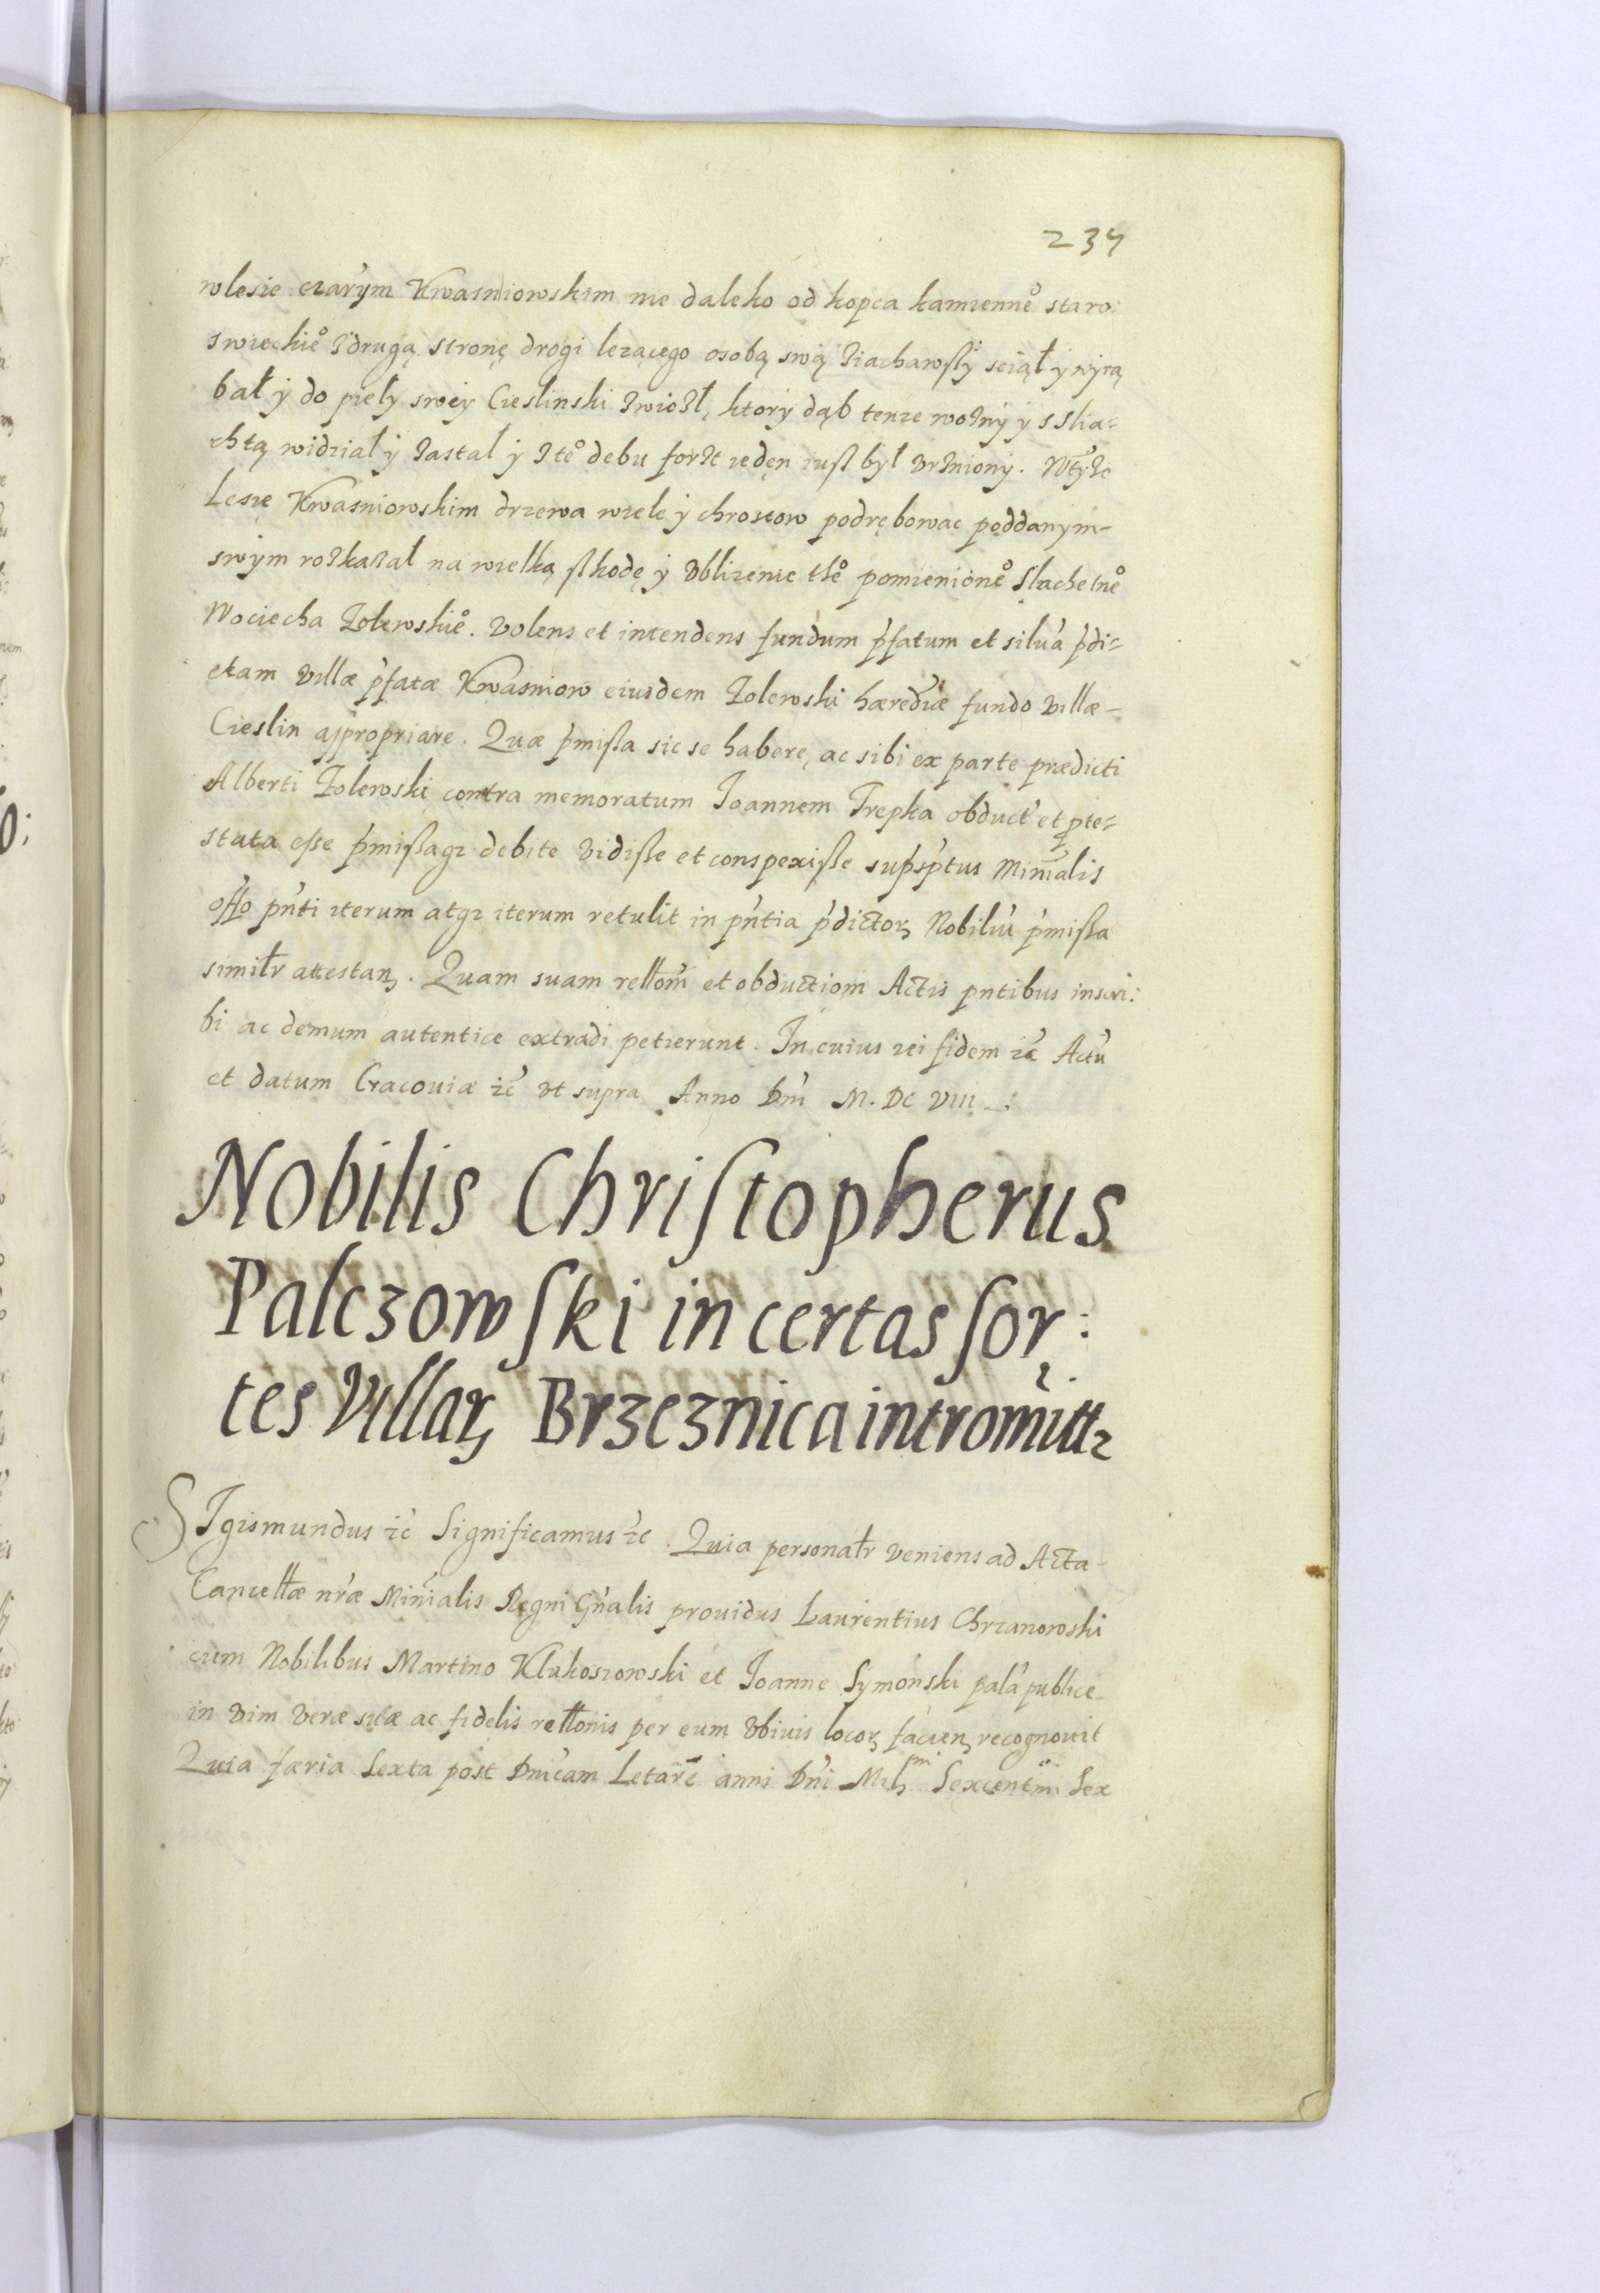 234
wlesie czarym Kwasniowskim nie daleko od kopca kamienneº staro:
swieckieº zdrugą stronę drogi lezącego osobą swą ziachawßy sciął y wyrą
bał y do piely swey Cieslinski zwiozł, ktory dąb tenze wozny y sslia=
chtą widział y zastał y z teº debu forszt ieden iuß był urżniony. Wtyże
Lesie Kwasniowskim drzewa wiele y chrostow podrębowac poddanym
swym rozkazał na wielką ßkodę y ublizenie theº pomienioneº Slachetneº
Wociecha Zolewskieº. Volens et intendens fundum p̃fatum et silvã p̃di=
ctam villæ p̃fatæ Kwasniow eiusdem Zolewski hæreditæ fundo villæ
Cieslin appropriare. Quæ p̃mißa sic se habere, ac sibi ex parte prædicti
Alberti Zolewski contra memoratum Ioannem Trepka obduct' et p̱te=
stata eße p̃mißaqꝫ debite vidiße et conspexiße sup̃sp̃tus Min̄ialis
offo pñti iterum atqꝫ iterum retulit in pñtia p̃dictoꝝ Nobiliũ p̃mißa
similr̄ attestanꝫ. Quam suam rellom̃ et obductiom̃ Actis pñtibus inscri:
bi ac demum autentice extradi petierunt. In cuius rei fidem ⁊c̃ Actũ
et datum Cracoviæ ⁊c̃ ut supra Anno Dñi M. DC VIII
Nobilis Chriſtopherus
Palczowſki in certas ſor:
tes Villaꝝ Brzeznica intromittꝫ
SIgismundus ⁊c̃ Significamus ⁊c̃. Quia personalr̄ veniens ad Acta
Cancellæ nr̃æ Min̄ialis Regni Gñalis providus Laurentius Chrzanowski
cum Nobilibus Martino Klukoszowski et Ioanne Symonski palã publice
in vim veræ suæ ac fidelis rellonis per eum ubivis locoꝝ facienꝫ recognovit
Quia færia Sexta post Dñicam Letare anni Dñi Milĺmi Sexcentmi Sex